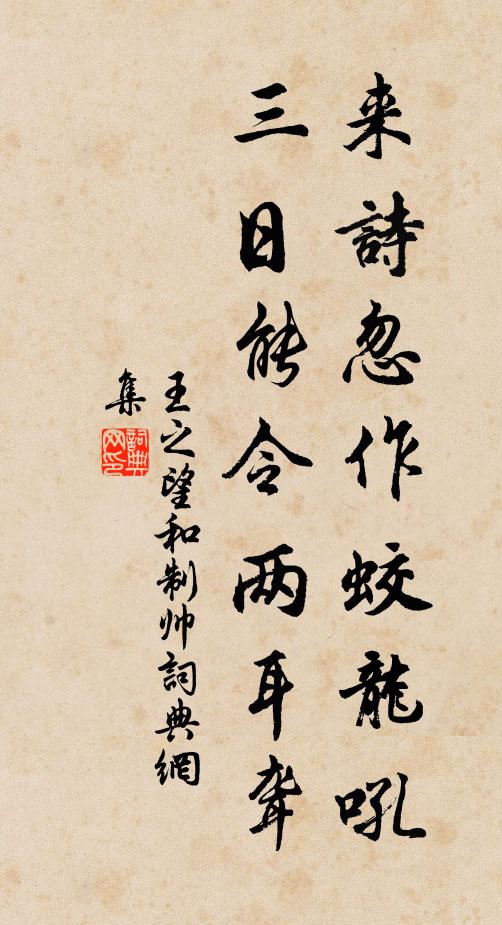 来詩忽作蛟龍吼
三日能令两耳聋
王之望和制帅詞典網
集
詞典网印